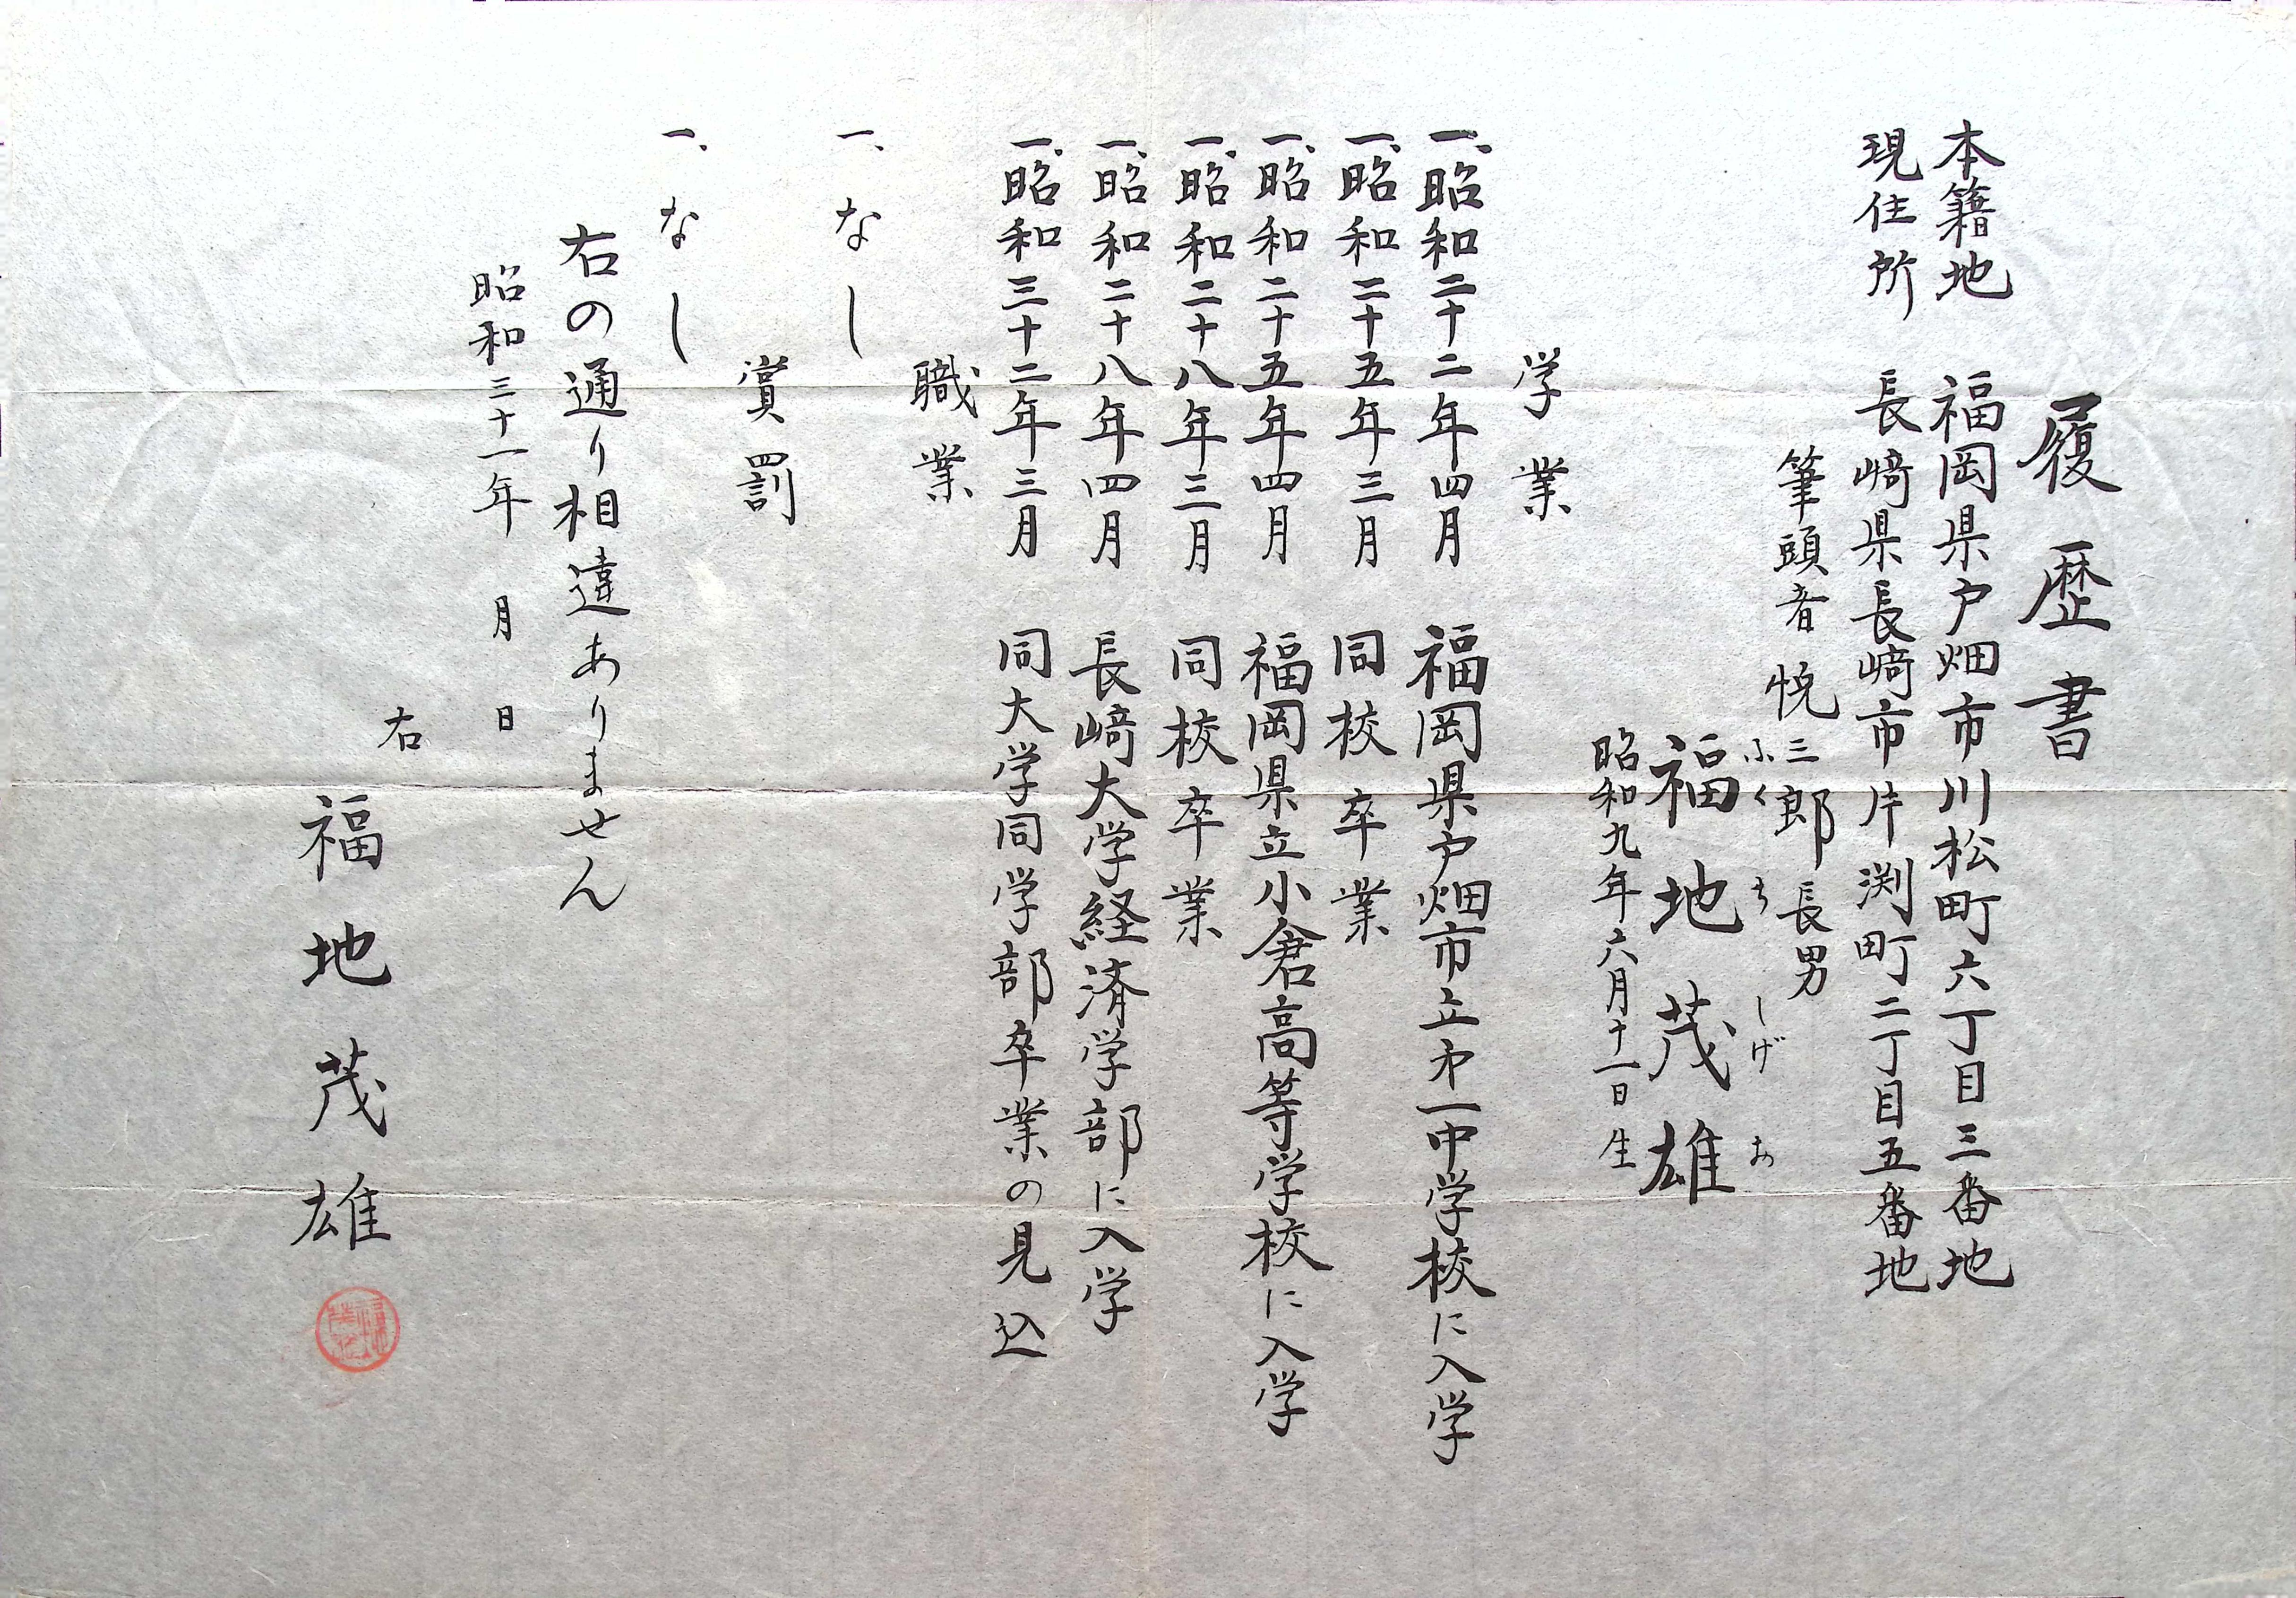 履歴書
本籍地　福岡県戸畑市川松町六丁目三番地
現住所　長﨑県長﨑市片渕町二丁目五番地
筆頭者 悦三郎 長男
ふくち しげお
福地茂雄
昭和九年六月十一日生
学業
一、昭和二十二年四月　福岡県戸畑市立㐧一中学校に入学
一、昭和二十五年三月　同校卒業
一、昭和二十五年四月　福岡県立小倉高等学校に入学
一、昭和二十八年三月　同校卒業
一、昭和二十八年四月　長﨑大学経済学部に入学
一、昭和三十二年三月　同大学同学部卒業の見込
職業
一、なし
賞罰
一、なし
右の通り相違ありません
昭和三十一年　月　日
右
福地茂雄